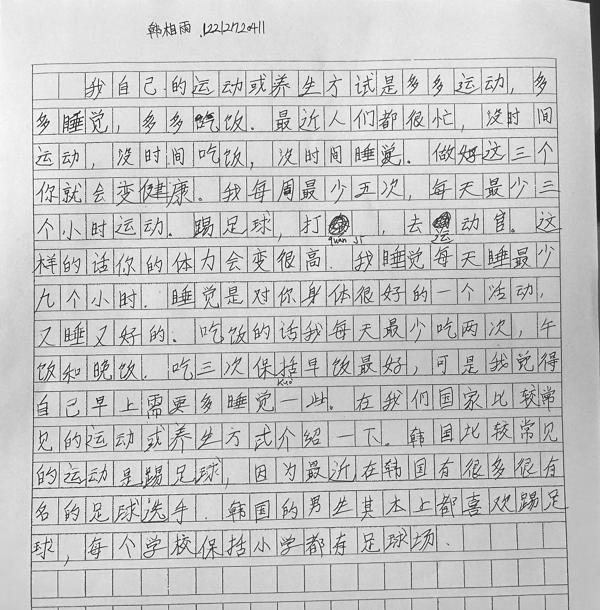 韩相雨 12212720411
我自己的运动或养生方试是多多运动,多
多睡觉,多多吃饭.最近人们都很忙,没时间
运动,没时间吃饭,没时间睡觉.做好这三个
你就会变健康。我每周最少五次,每天最少三
个小时运动.踢足球,打 ,去 动官。这
quan ji 运
样的话你的体力会变很高.我睡觉每天睡最少
九个小时.睡觉是对你身体很好的一个活动,
又睡又好的.吃饭的话我每天最少吃两次,午
饭和晚饭.吃三次保括早饭最好,可是我觉得
kuò
自己早上需要多睡觉一些。在我们国家比较常
见的运动或养生方式介绍一下。韩国比较常见
的运动是踢足球,因为最近在韩国有很多很有
名的足球选手.韩国的男生其本上都喜欢踢足
球,每个学校保括小学都有足球场.